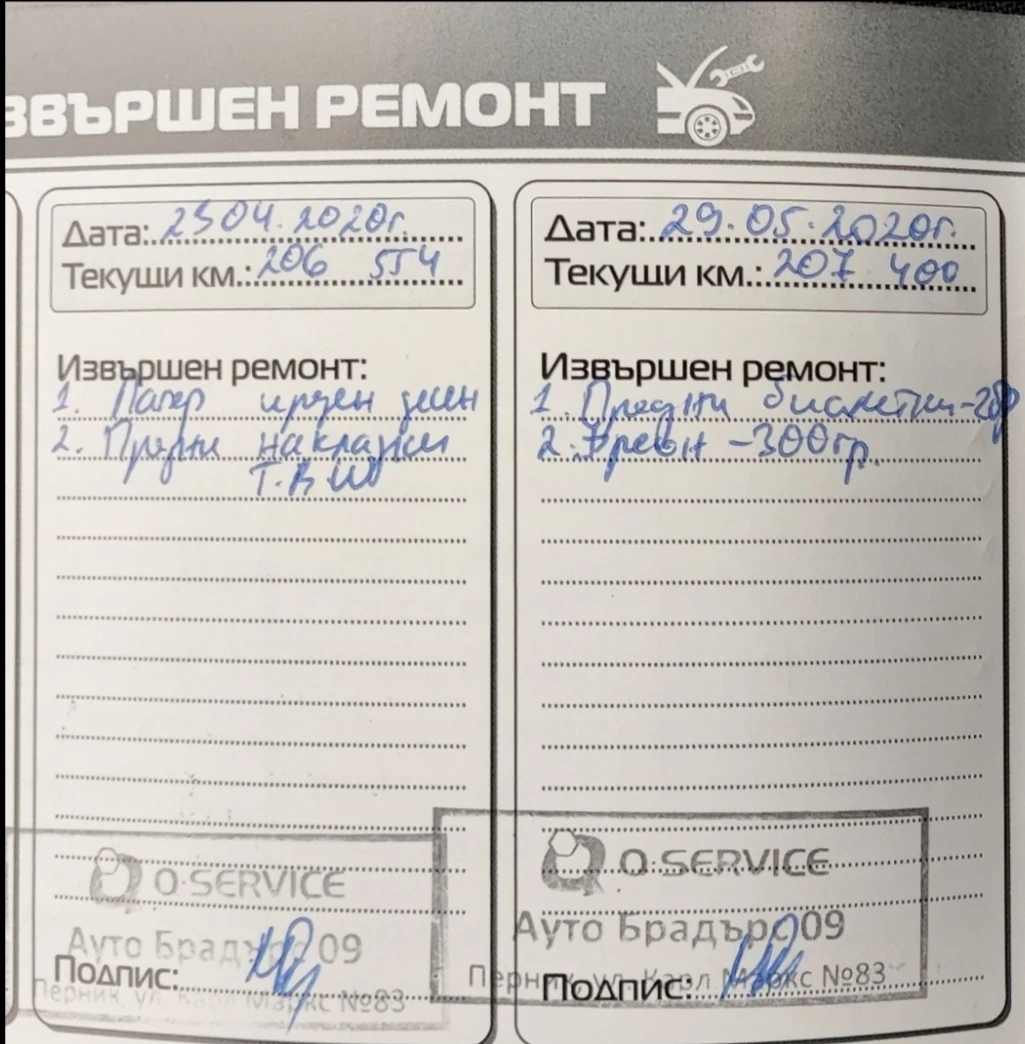 ЗВЪРШЕН РЕМОНТ
Дата: 2504.2020г.
Текущи км.: 206 554
Извършен ремонт:
1. Лагер десен
2. Предни накладки
Т.В.Ш
O·SERVICE
Ауто Брадърс 09
Подпис:
Перник, ул. Карл Маркс №83
Дата: 29.05.2020г.
Текущи км.: 207 400
Извършен ремонт:
1. Предни биалетки-2бр
2. Фреон -300гр.
O·SERVICE
Ауто Брадърс 09
Перник, ул. Карл Маркс №83
Подпис: